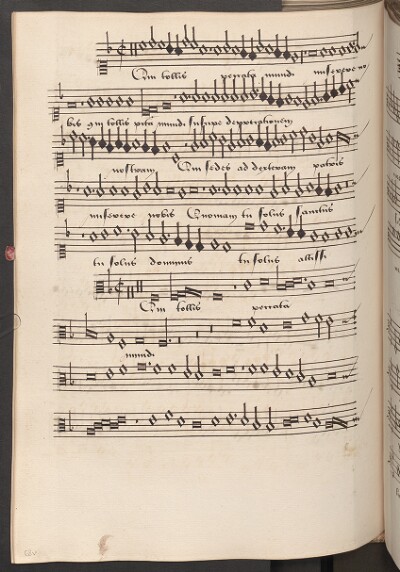 Qui tollis peccata mundi miserere no
bis qui tollis pcta mundi suscipe deprecationem
nostram Qui sedes ad dexteram patris
miserere nobis Quoniam tu solus sanctus
tu solus dominus tu solus altissi
Qui tollis peccata
mundi